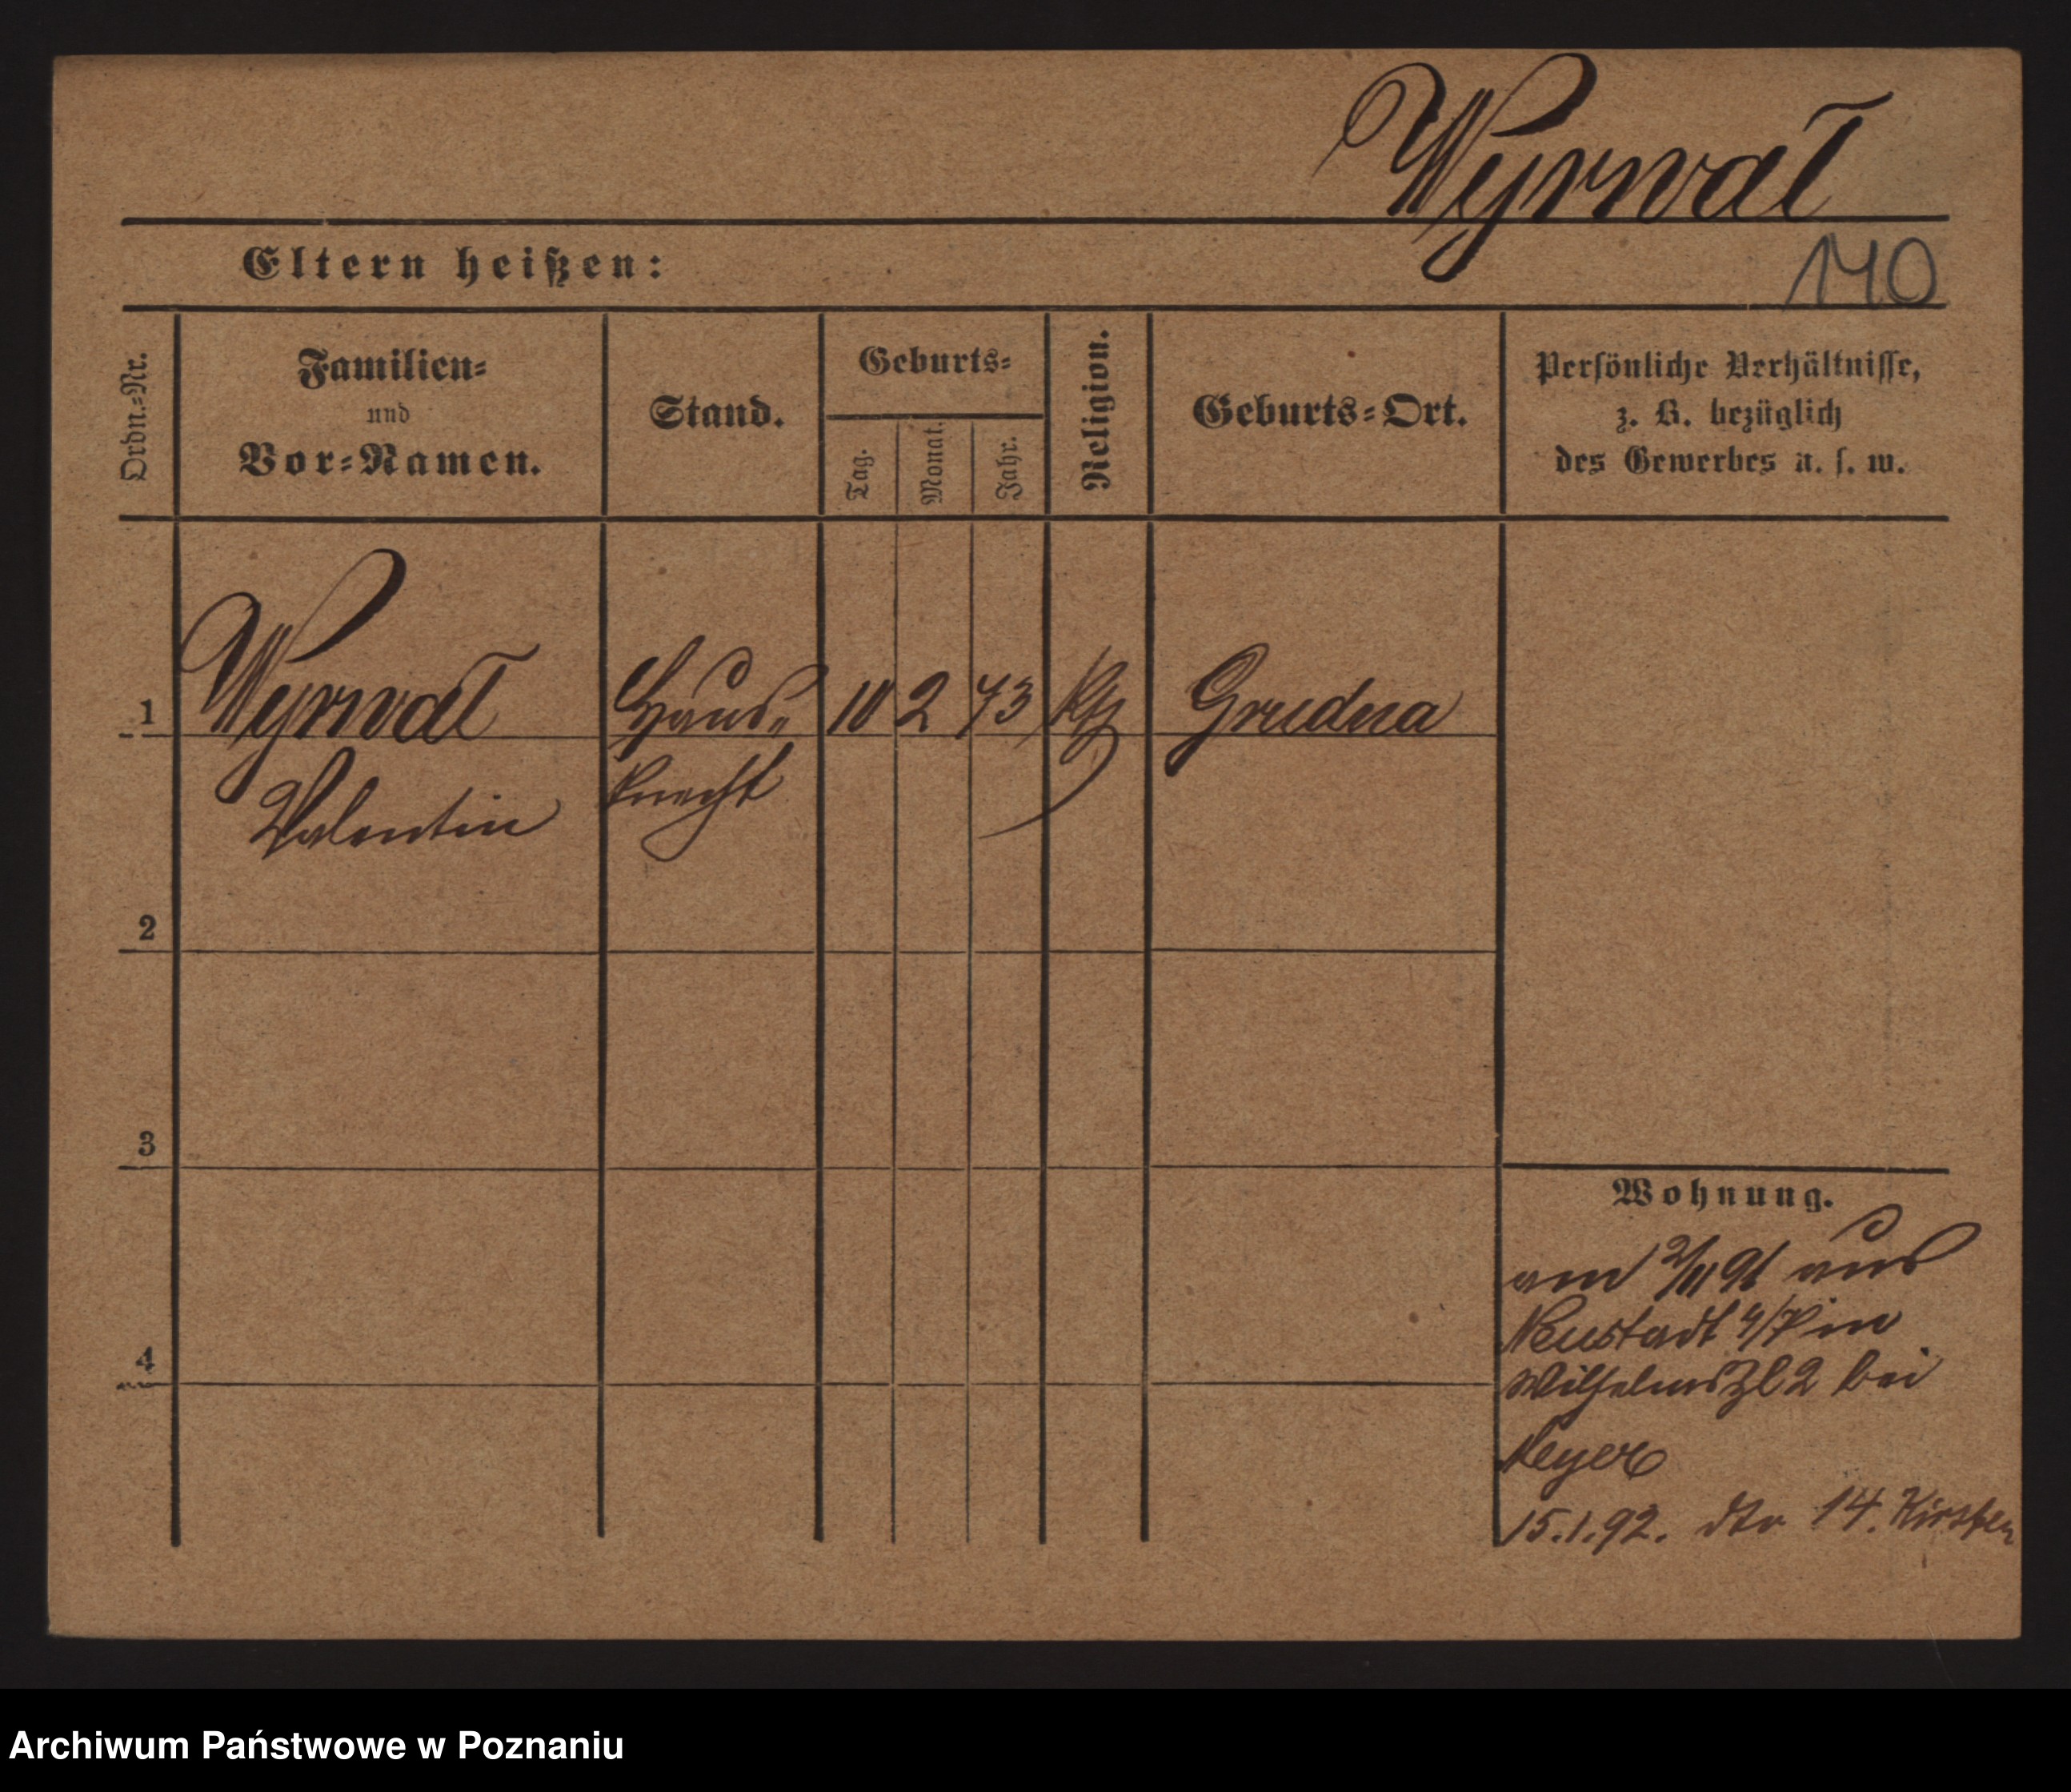 Wyrwał
140
Eltern heißen:
Ordn.-Nr.
Familien-
und
Vor-Namen.
Stand.
Geburts-
Tag.
Monat.
Jahr.
Religion.
Geburts-Ort.
Persönliche Verhältnisse,
z. B. bezüglich
des Gewerbes u. s. w.
1
Wyrwał
Valentin
Haus-
knecht
10
2
73
Kth
2
3
4
Wohnung.
am 2/11 91 aus
Neustadt in
Wilhelmspl 2 bei
Meyer
15.1.92. dto 14. Kirsten
Archiwum Państwowe w Poznaniu